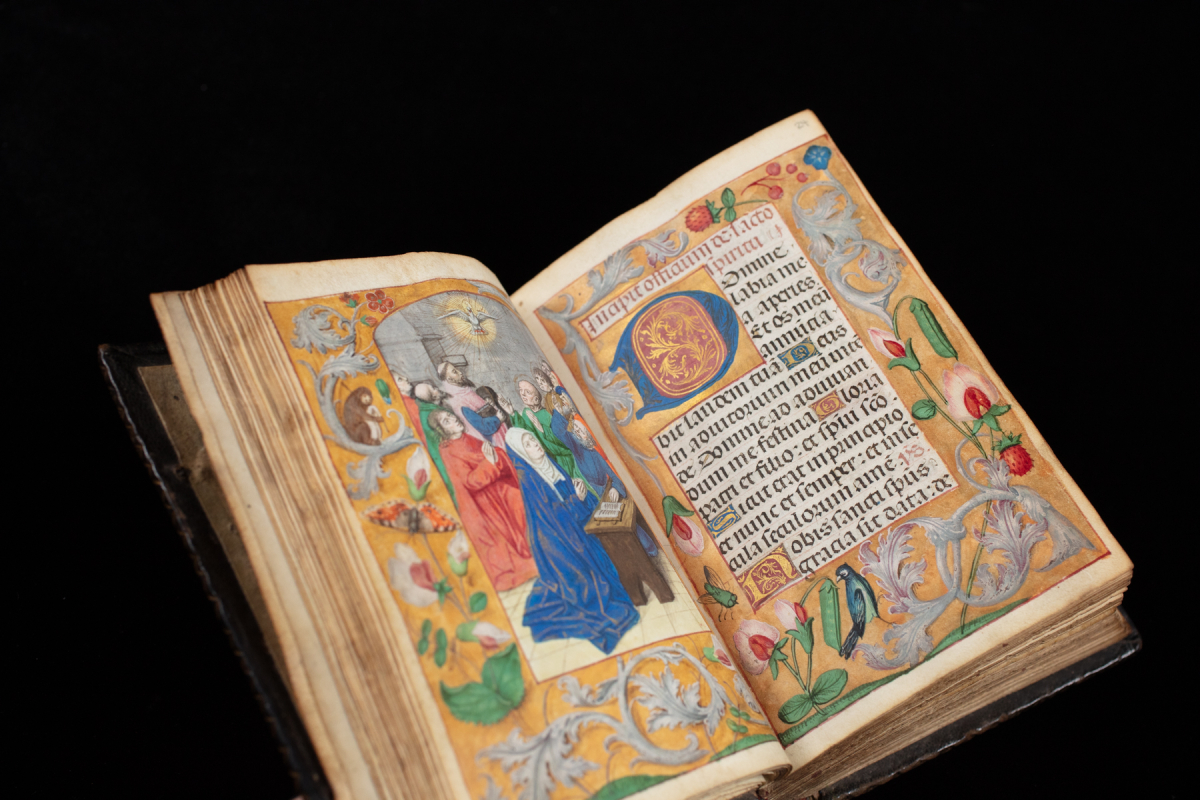 24
Incipit officium de sācto
spiritu
Domine
labia me
a aperies
Et os meū
annuncia
bit laudem tuā Deus
in adiutorium meum inte
de Domine ad adiuuan
dum me festina Gloria
patri et filio: et spiui scō
Sicut erat in principio
et nunc et semper: et in se
cula seculorum ame
alla Nobis sancti spūs
gracia sit data: de